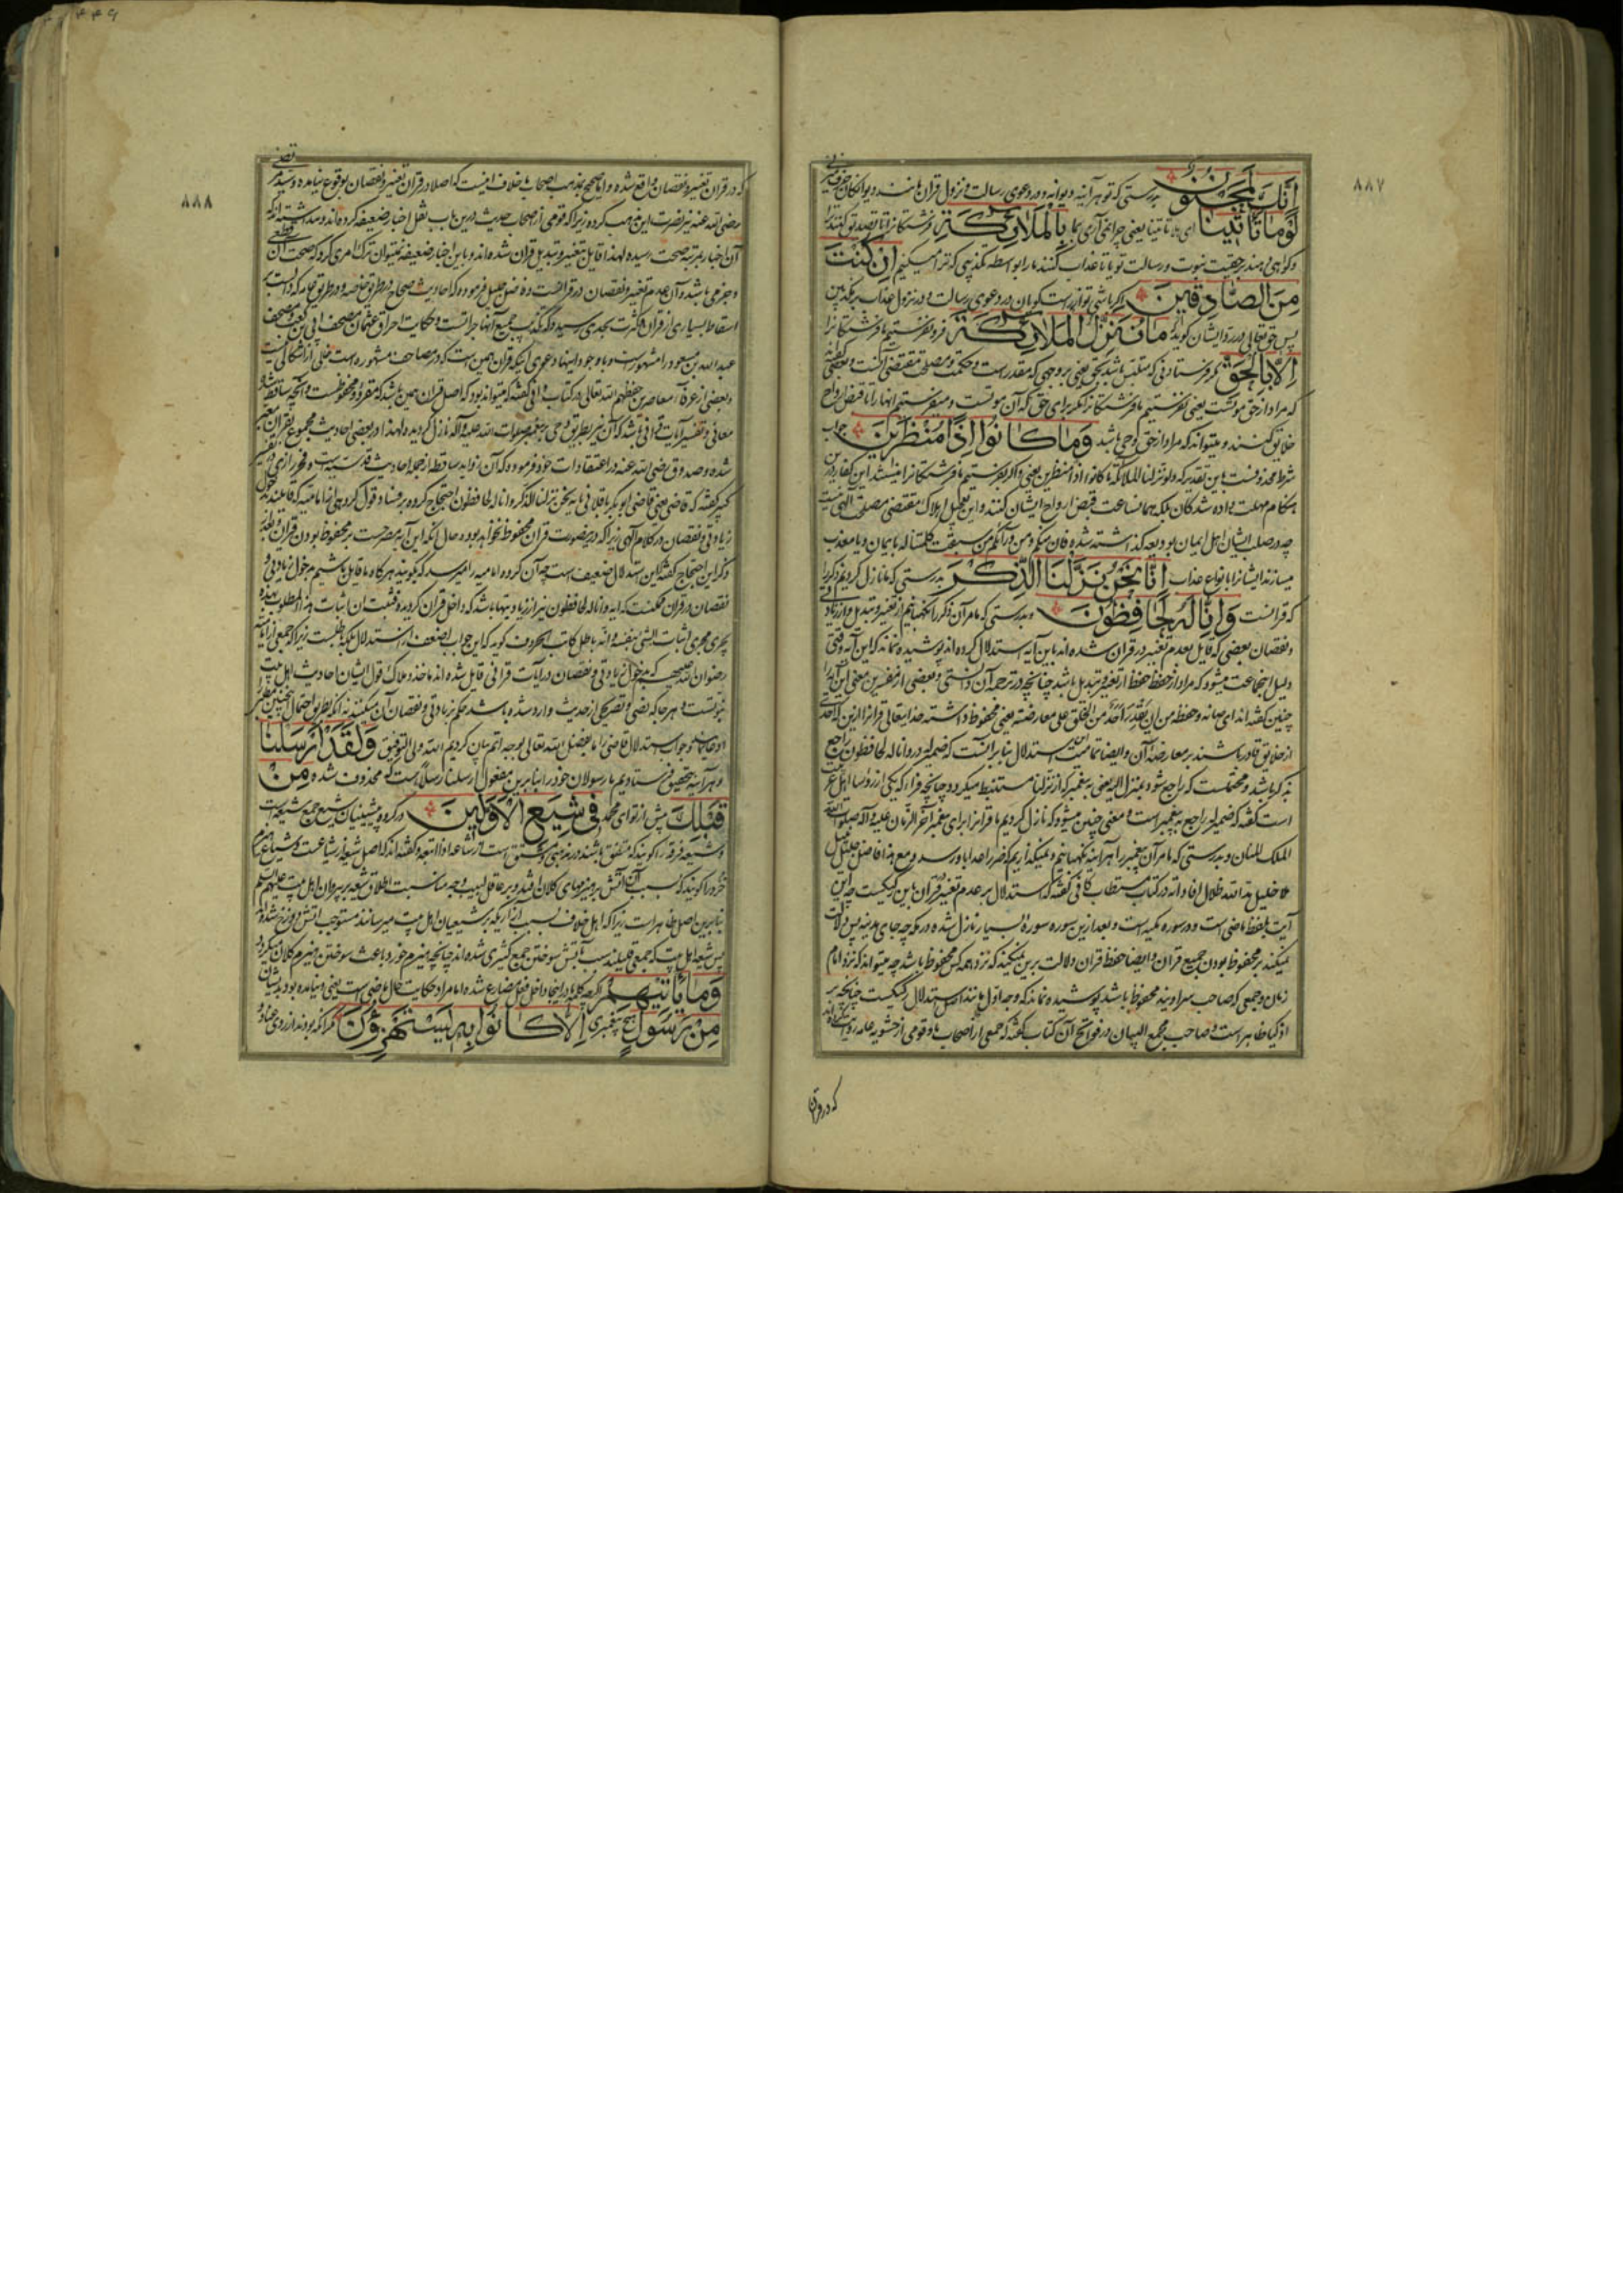 ۸۸۷
إِنَّكَ لَمَجْنُونٌ بدرستی که تو هر آینه دیوانه و در دعوی رسالت و نزول قران مانند دیوانگان حرف میزنی
لَوْمَا تَأْتِينَا ای هلا تاتینا یعنی چرا نمی آری بما بِالْمَلَائِكَةِ فرشتگانرا تا تصدیق کنند ترا
و گواهی دهند بر حقیت نبوت و رسالت تو یا تا عذاب کنند ما را بواسطه تکذیبی که ترا میکنیم إِنْ كُنْتَ
مِنَ الصَّادِقِينَ اگر باشی تو از راست گویان در دعوی رسالت و در نزول عذاب بر مکذبین
پس حق تعالی در رد ایشان گوید مَا نُنَزِّلُ الْمَلَائِكَةَ فرو نفرستیم ما فرشتگانرا
إِلَّا بِالْحَقِّ مگر فرستادنی که متلبس باشد بحق یعنی بر وجهی که مقدر است و حکمت و مصلحت مقتضی آنست و بعضی گفته
که مراد از حق موتست یعنی نفرستیم ما فرشتگانرا مگر برای حق که آن موتست و میفرستیم انها را تا قبض ارواح
خلایق کنند و میتواند که مراد از حق وحی باشد وَمَا كَانُوا إِذًا مُنْظَرِينَ جواب
شرط محذوفست باین تقدیر که و لو نزلنا الملائکة ما کانوا اذا منظرین یعنی و اگر بفرستیم ما فرشتگانرا نباشند این کفار درین
هنگام مهلت داده شدگان بلکه همانساعت قبض ارواح ایشان کنند و این تعجیل اهلاک مقتضی مصلحت الهی نیست
چه در صلب ایشان اهل ایمان بودیعه گذاشته شده فان منکم و من ورآئکم من سبقت کلمتنا له بایمان و یا معذب
میسازند ایشانرا بانواع عذاب إِنَّا نَحْنُ نَزَّلْنَا الذِّكْرَ بدرستی که ما نازل کردیم ذکر را
که قرانست وَإِنَّا لَهُ لَحَافِظُونَ و بدرستی که ما مر آن ذکر را نگهبانیم از تغییر و تبدیل و از زیادتی
و نقصان بعضی که قایل بعدم تغییر در قران شده اند باین آیه استدلال کرده اند پوشیده نماند که این آیه وقتی
دلیل انجماعت میشود که مراد از حفظ حفظ از تغییر و تبدیل باشد چنانچه در ترجمه آن دانستی و بعضی از مفسرین معنی این آیه را
چنین گفته اند ای صانه و حفظه من ان یقدر احد من الخلق علی معارضته یعنی محفوظ داشته خدایتعالی قرانرا ازین که احدی
از خلایق قادر باشند بر معارضه آن و ایضا تمامیت این استدلال بنا بر انست که ضمیر له در و انا له لحافظون راجع
بذکر باشد و محتملست که راجع شود بمنزل الیه یعنی پیغمبر که از نزلنا مستنبط میگردد چنانچه فراء که یکی از رؤسا اهل عربیت
است گفته که ضمیر له راجع به پیغمبر است و معنی چنین میشود که نازل کردیم ما قرانرا برای پیغمبر آخر الزمان علیه و آله صلوات الله
الملک المنان و بدرستی که ما مر آن پیغمبر را هر آینه نگهبانیم و نمیگذاریم که ضرر اعدا باو رسد و مع هذا فاضل جلیل
ملا خلیل مد الله ظلال افاداته در کتاب مستطاب کافی گفته که استدلال بر عدم تغییر قران باین رکیکست چه این
آیت بلفظ ماضی است و در سوره مکیه است و بعد ازین سوره سورۀ بسیار نازل شده در مکه چه جای مدینه پس دلالت
نمیکند بر محفوظ بودن جمیع قران و ایضا حفظ قران دلالت برین نمیکند که نزد همه کس محفوظ باشد چه میتواند که نزد امام
زمان و جمعی که صاحب سر اویند محفوظ باشد پوشیده نماند که وجه اول مانند استدلال رکیکست چنانچه بر
اذکیا ظاهر است و صاحب مجمع البیان در فواتح آن کتاب گفته که جمعی از اصحاب ما و قومی از حشویه عامه روایت کرده اند
که در قران
۸۸۸
که در قران تغییر و نقصان واقع شده و اما صحیح مذهب اصحاب ما خلاف اینست که اصلا در قران تغییر و نقصان بوقوع نیامده و سید مرتضی
رضی الله عنه نیز نصرت این مذهب کرده زیرا که قومی از اصحاب حدیث درین باب نقل اخبار ضعیفه کرده اند و مدانسته اند که
آن اخبار بمرتبه صحت رسیده لهذا قایل بتغییر و تبدیل قران شده اند و باین اخبار ضعیفه نمیتوان ترک امری کرد که صحت آن قطعی
و جزمی باشد و آن عدم تغییر و نقصان در قرانست و فاضل جلیل فرموده که احادیث صحاح در طرق خاصه و در طریق عامه که دالست بر
اسقاط بسیاری از قران در کثرت بحدی رسیده که تکذیب جمیع آنها جراتست و حکایت احراق عثمان مصحف ابی بن کعب و مصحف
عبد الله بن مسعود را مشهور است و با وجود اینها دعوی اینکه قران همین ست که در مصاحف مشهوره است خالی از اشکالی نیست
و بعضی از عرفاء معاصرین حفظهم الله تعالی در کتاب وافی گفته که میتواند بود که اصل قران همین باشد که مقروء و محفوظست و آنچه ساقط شده
معانی و تفسیر آیات قرانی باشد که آن نیز بطریق وحی بر پیغمبر صلوات الله علیه و آله نازل گردیده و لهذا در بعضی احادیث مجموع بقران معبر
شده و صدوق رضی الله عنه در اعتقادات خود فرموده که آن زواید ساقطه از جمله احادیث قدسیه است و فخر رازی در تفسیر
کبیر گفته که قاضی یعنی قاضی ابو بکر باقلانی بآیه نحن نزلنا الذکر و انا له لحافظون احتجاج کرده بر فساد قول گروهی از امامیه که قایلند بدخول
زیادتی و نقصان در کلام الهی زیرا که درینصورت قران محفوظ نخواهد بود و حال انکه این آیه مصرحست بر محفوظ بودن قران و بعد از
ذکر این احتجاج گفته که این استدلال ضعیف است چه آن گروه امامیه را میرسد که بگویند هر گاه ما قایل باشیم بدخول زیادتی و
نقصان در قران ممکنست که آیه و انا له لحافظون نیز از زیادتیها باشد که داخل قران گردیده فیثبت ان اثبات هذا المطلوب بهذه
یجری مجری اثبات الشئ بنفسه و انه باطل کاتب الحروف گوید که این جواب اضعف از استدلال بلکه باطلست زیرا که جمعی از امامیه
رضوان الله علیهم که بدخول زیادتی و نقصان در آیات قرانی قایل شده اند ماخذ و ملاک قول ایشان احادیث اهل بیت
نبوتست و هر جا که نصی و تصریحی از حدیث وارد شده باشد حکم بزیادتی و نقصان آن میکنند نه انکه بطریق احتمال چنین میگفته
و جواب استدلال قاضی را ما بفضل الله تعالی بوجه اتم بیان کردیم الله ولی التوفیق وَلَقَدْ أَرْسَلْنَا
و هر آینه بتحقیق فرستادیم ما رسولان خود را بنا برین مفعول ارسلنا رسلا است که محذوف شده مِنْ
قَبْلِكَ پیش از تو ای محمد فِي شِيَعِ الْأَوَّلِينَ در گروه پیشینیان شیع جمع شیعه است
و شیعه فرقه را گویند که متفق باشند در مذهبی و مشتق است از شاعه اذا اتبعه و گفته اند که اصل شیعه از شیاعست و شیاع هیزم
خرد را گویند که بسبب آن آتش بر هیزمهای کلان افتد و بر عاقل لبیب وجه مناسبت اطلاق شیعه بر پیروان اهل بیت علیهم السلم
بنا برین اصل ظاهر است زیرا که اهل خلاف بسبب آزاریکه بر شیعیان اهل بیت میرسانند مستوجب اتش دوزخ شده اند
پس شیعه اهل بیت که جمعی قلیلند سبب آتش سوختن جمع کثیری شده اند چنانچه هیزم خورد باعث سوختن هیزم کلان میگردد
وَمَا يَأْتِيهِمْ اگر چه کلمه ما در اینجا داخل فعل مضارع شده اما مراد حکایت حال ماضی است یعنی و نیامده بود بدیشان
مِنْ رَسُولٍ هیچ پیغمبری إِلَّا كَانُوا بِهِ يَسْتَهْزِؤُنَ مگر انکه بودند از روی عناد